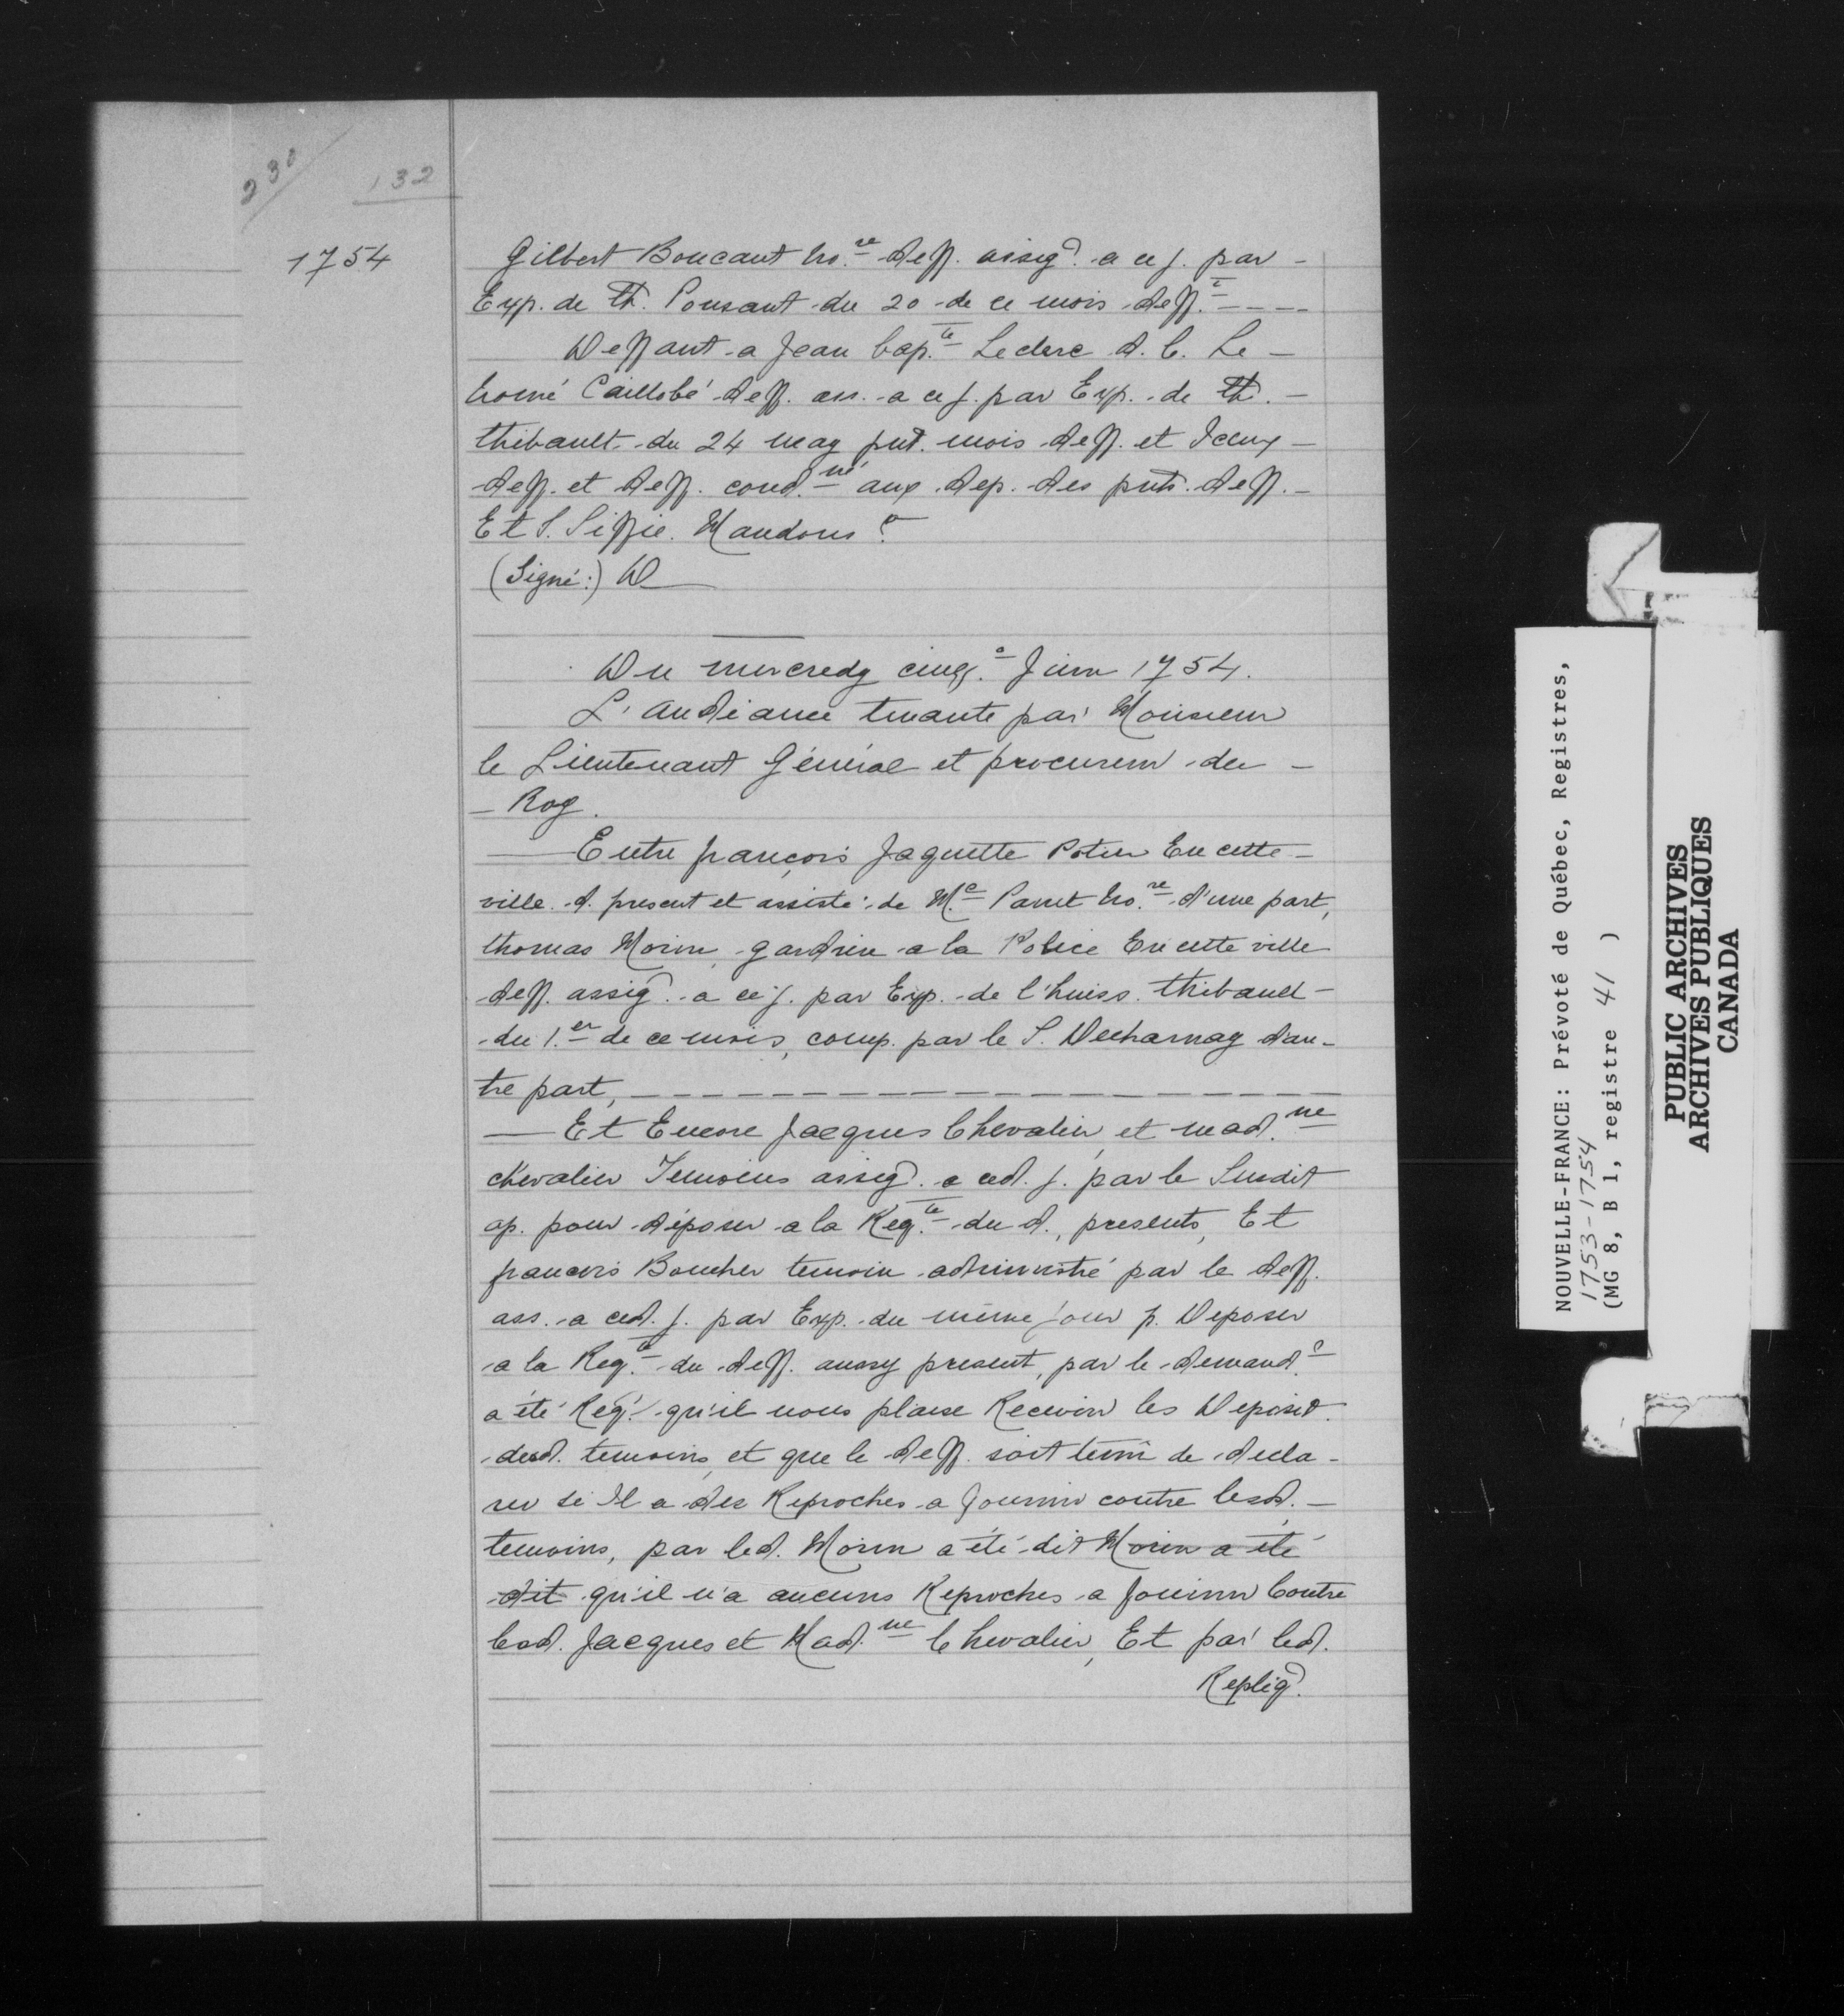 230
132
1754
Gilbert Boucaut hs.re deff. assig. a ce j. par -
Exp. de Th. Ponsant du 20 de ce mois deff.t ----
Deffaut a Jean bap.te Leclerc d. C. Le -
Caillobé deff. ass. a ce j. par Exp. de Th. -
thibault du 24 may pnt. mois deff. et Iceux -
deff. et deff. cond.né aux dep. des pnts. deff. -
Et S. Siffie. Mandons &
(Signé:) D
Du mercredy cinq.e Juin 1754.
L'audiance tenante par Monsieur
le Lieutenant Général et procureur du -
- Roy.
Entre françois Jaquette Potier En cette -
ville d. present et assisté de M.e Panet no.re d'une part,
thomas Morin, gardien a la Police En cette ville
deff. assig. a ce j. par Exp. de l'huiss. thibault -
du 1.er de ce mois, comp. par le S. Decharnay d'au-
tre part, ----
Et Encore Jacques Chevalier, et mad.ne
chevalier Temoins assig. a ced. j. par le Susdit
op. pour déposer a la Req.te du d., presents, Et
francois Boucher temoin administré par le deff.
ass. a ced. j. par Exp. du même jour p. Deposer
a la Req.te du deff. aussy present, par le demand.r
a été Req. qu'il nous plaise Recevoir les Deposit.
desd. temoins, et que le deff. soit tenu de decla-
rer si Il a des Reproches a fournir contre lesd. -
temoins, par led. Morin a été dit Morin a été
dit qu'il n'a aucuns Reproches a fournir Contre
lesd. Jacques et Mad.ne Chevalier, Et par led.
Repliq.
NOUVELLE-FRANCE: Prévoté de Québec, Registres,
1753-1754
(MG 8, B 1, registre 41 )
PUBLIC ARCHIVES
ARCHIVES PUBLIQUES
CANADA